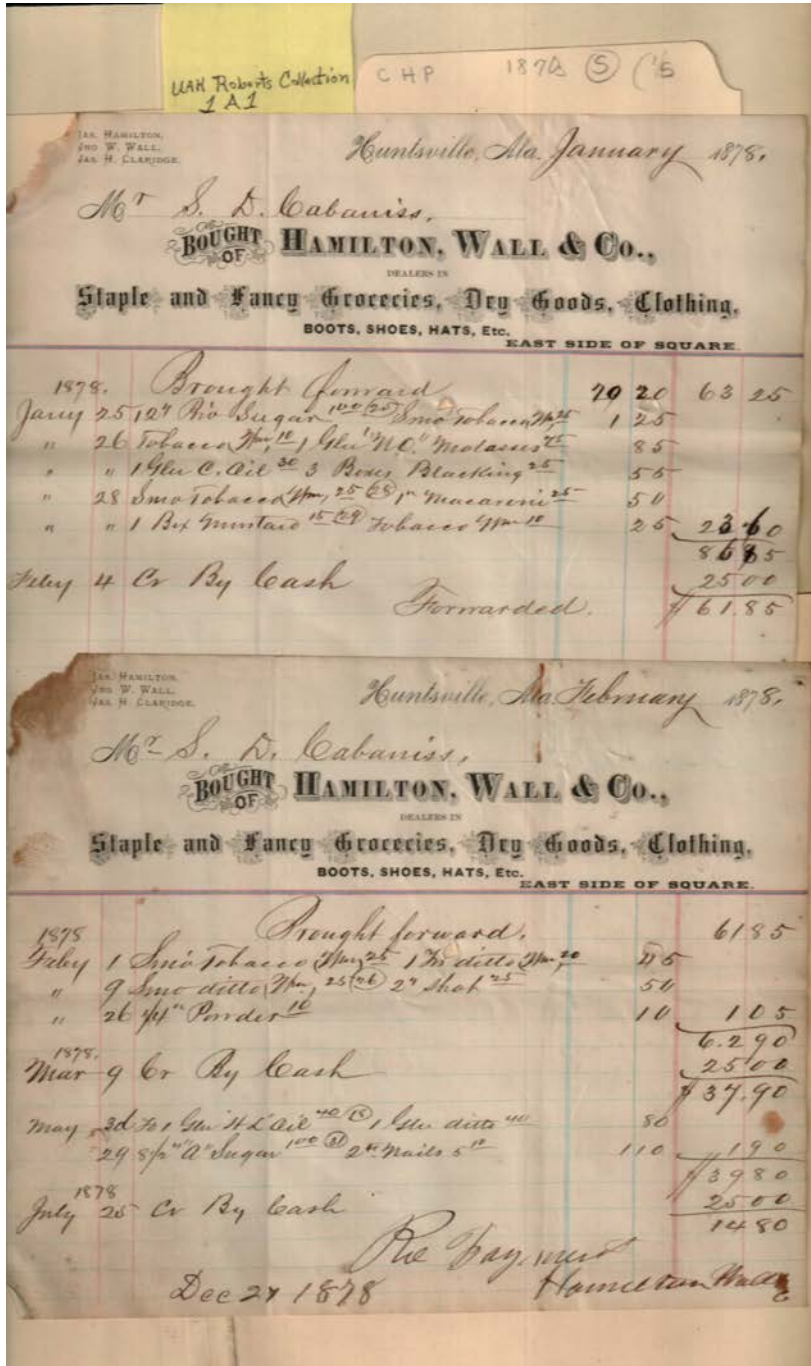 UAH Roberts Collection
1A1
CHP 1878 (5) (1/5
JAS. HAMILTON,
JNO W. WALL,
JAS. H. CLARIDGE.
Huntsville, Ala. January 1878.
Mr S. D. Cabaniss,
BOUGHT OF HAMILTON, WALL & CO.,
DEALERS IN
Staple and Fancy Groceries, Dry Goods, Clothing,
BOOTS, SHOES, HATS, Etc.
EAST SIDE OF SQUARE.
1878. Brought forward 20 20 63 25
Jany 25 12# Rio Sugar 100 (25) Smo Tobacco Wm 25 1 25
" 26 Tobacco Wm 10 1 Glu "N.O." Molasses 75 85
" " 1 Glu C. Oil 30 3 Boxes Blacking 25 55
" 28 Smo Tobacco Wm, 25 (28) 1# Macaroni 25 50
" " 1 Bx Mustard 15 (29) Tobacco Wm 10 25 23 60
86 85
Feby 4 Cr By Cash 25 00
Forwarded. $61.85
JAS. HAMILTON,
JNO W. WALL,
JAS. H. CLARIDGE.
Huntsville, Ala. February 1878.
Mr S. D. Cabaniss,
BOUGHT OF HAMILTON, WALL & CO.,
DEALERS IN
Staple and Fancy Groceries, Dry Goods, Clothing,
BOOTS, SHOES, HATS, Etc.
EAST SIDE OF SQUARE.
1878 Brought forward. 61 85
Feby 1 Smo Tobacco Wm, 25 1 ditto Wm, 20 45
" 9 Smo ditto Wm, 25 (26) 2# Shot 25 50
" 26 1/4" Powder 10 10 1 05
62 90
1878. Mar 9 Cr By Cash 25 00
$37.90
May 3d To 1 Glu "H L" Oil 40 (13) 1 Glu ditto 40 80
29 8 1/2# "A" Sugar 100 (31) 2# Nails 5 10 1 10 1 90
$39 80
1878 July 25 Cr By Cash 25 00
14 80
Rec Payment
Dec 27 1878 Hamilton Wall & Co